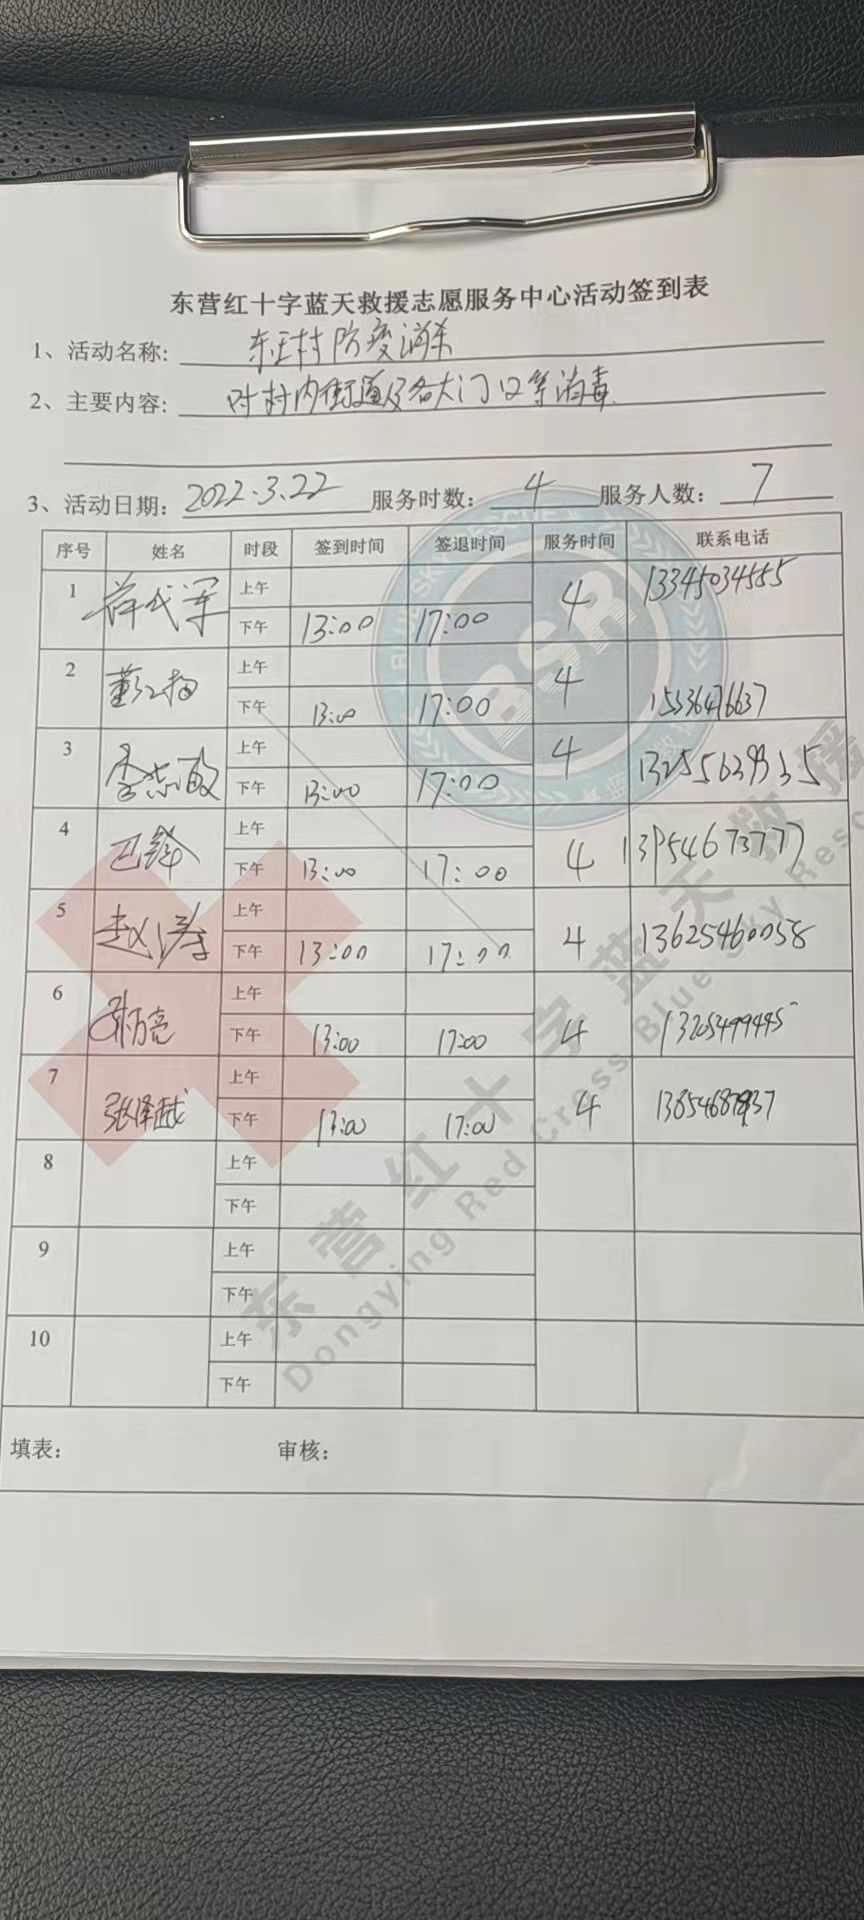 东营红十字蓝天救援志愿服务中心活动签到表
1、活动名称: 东王村防疫消杀
2、主要内容: 对村内街道及各大门口等消毒
3、活动日期: 2022.3.22 服务时数: 4 服务人数: 7
序号 姓名 时段 签到时间 签退时间 服务时间 联系电话
1 上午
下午 13:00 17:00 4 13345034555
2 上午
下午 13:00 17:00 4 15336476637
3 李志敏 上午
下午 13:00 17:00 4
4 上午
下午 13:00 17:00 4 13954673777
5 赵涛 上午
下午 13:00 17:00 4 13625460058
6 上午
下午 13:00 17:00 4 13205499495
7 张泽越 上午
下午 13:00 17:00 4
8 上午
下午
9 上午
下午
10 上午
下午
填表: 审核:
BSR
东营红十字蓝天救援
Dongying Red Cross Blue Sky Resc